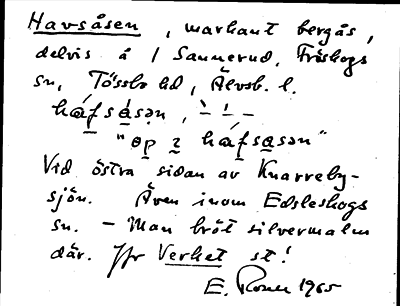 Havsåsen, markant bergås,
delvis å / Sannerud, Fröskogs
sn, Tössbo hd, Älvsb. l.
háfsåsən, ` ' –
"øp 2 háfsasən"
Vid östra sidan av Knarreby-
sjön. Även inom Edsleskogs
sn. – Man bröt silvermalm
där. Jfr Verket st!
E. 1965